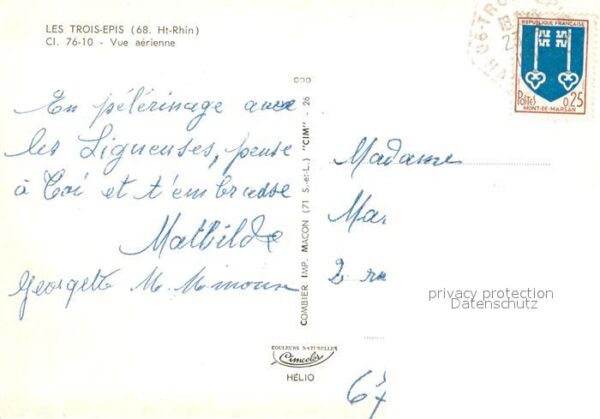 LES TROIS-EPIS (68. Ht-Rhin)
Cl. 76-10 - Vue aérienne
RÉPUBLIQUE FRANÇAISE
Postes 0,25
MONT-DE-MARSAN
En pélérinage avec
les Ligueuses, pense
à Toi et t'embrasse
Mathilde
Georgette M.
COMBIER IMP. MACON (71 S.-et-L.) "CIM" - 26
Madame
Mar
2 rue
67
privacy protection
Datenschutz
COULEURS NATURELLES
Cimcolor
HÉLIO